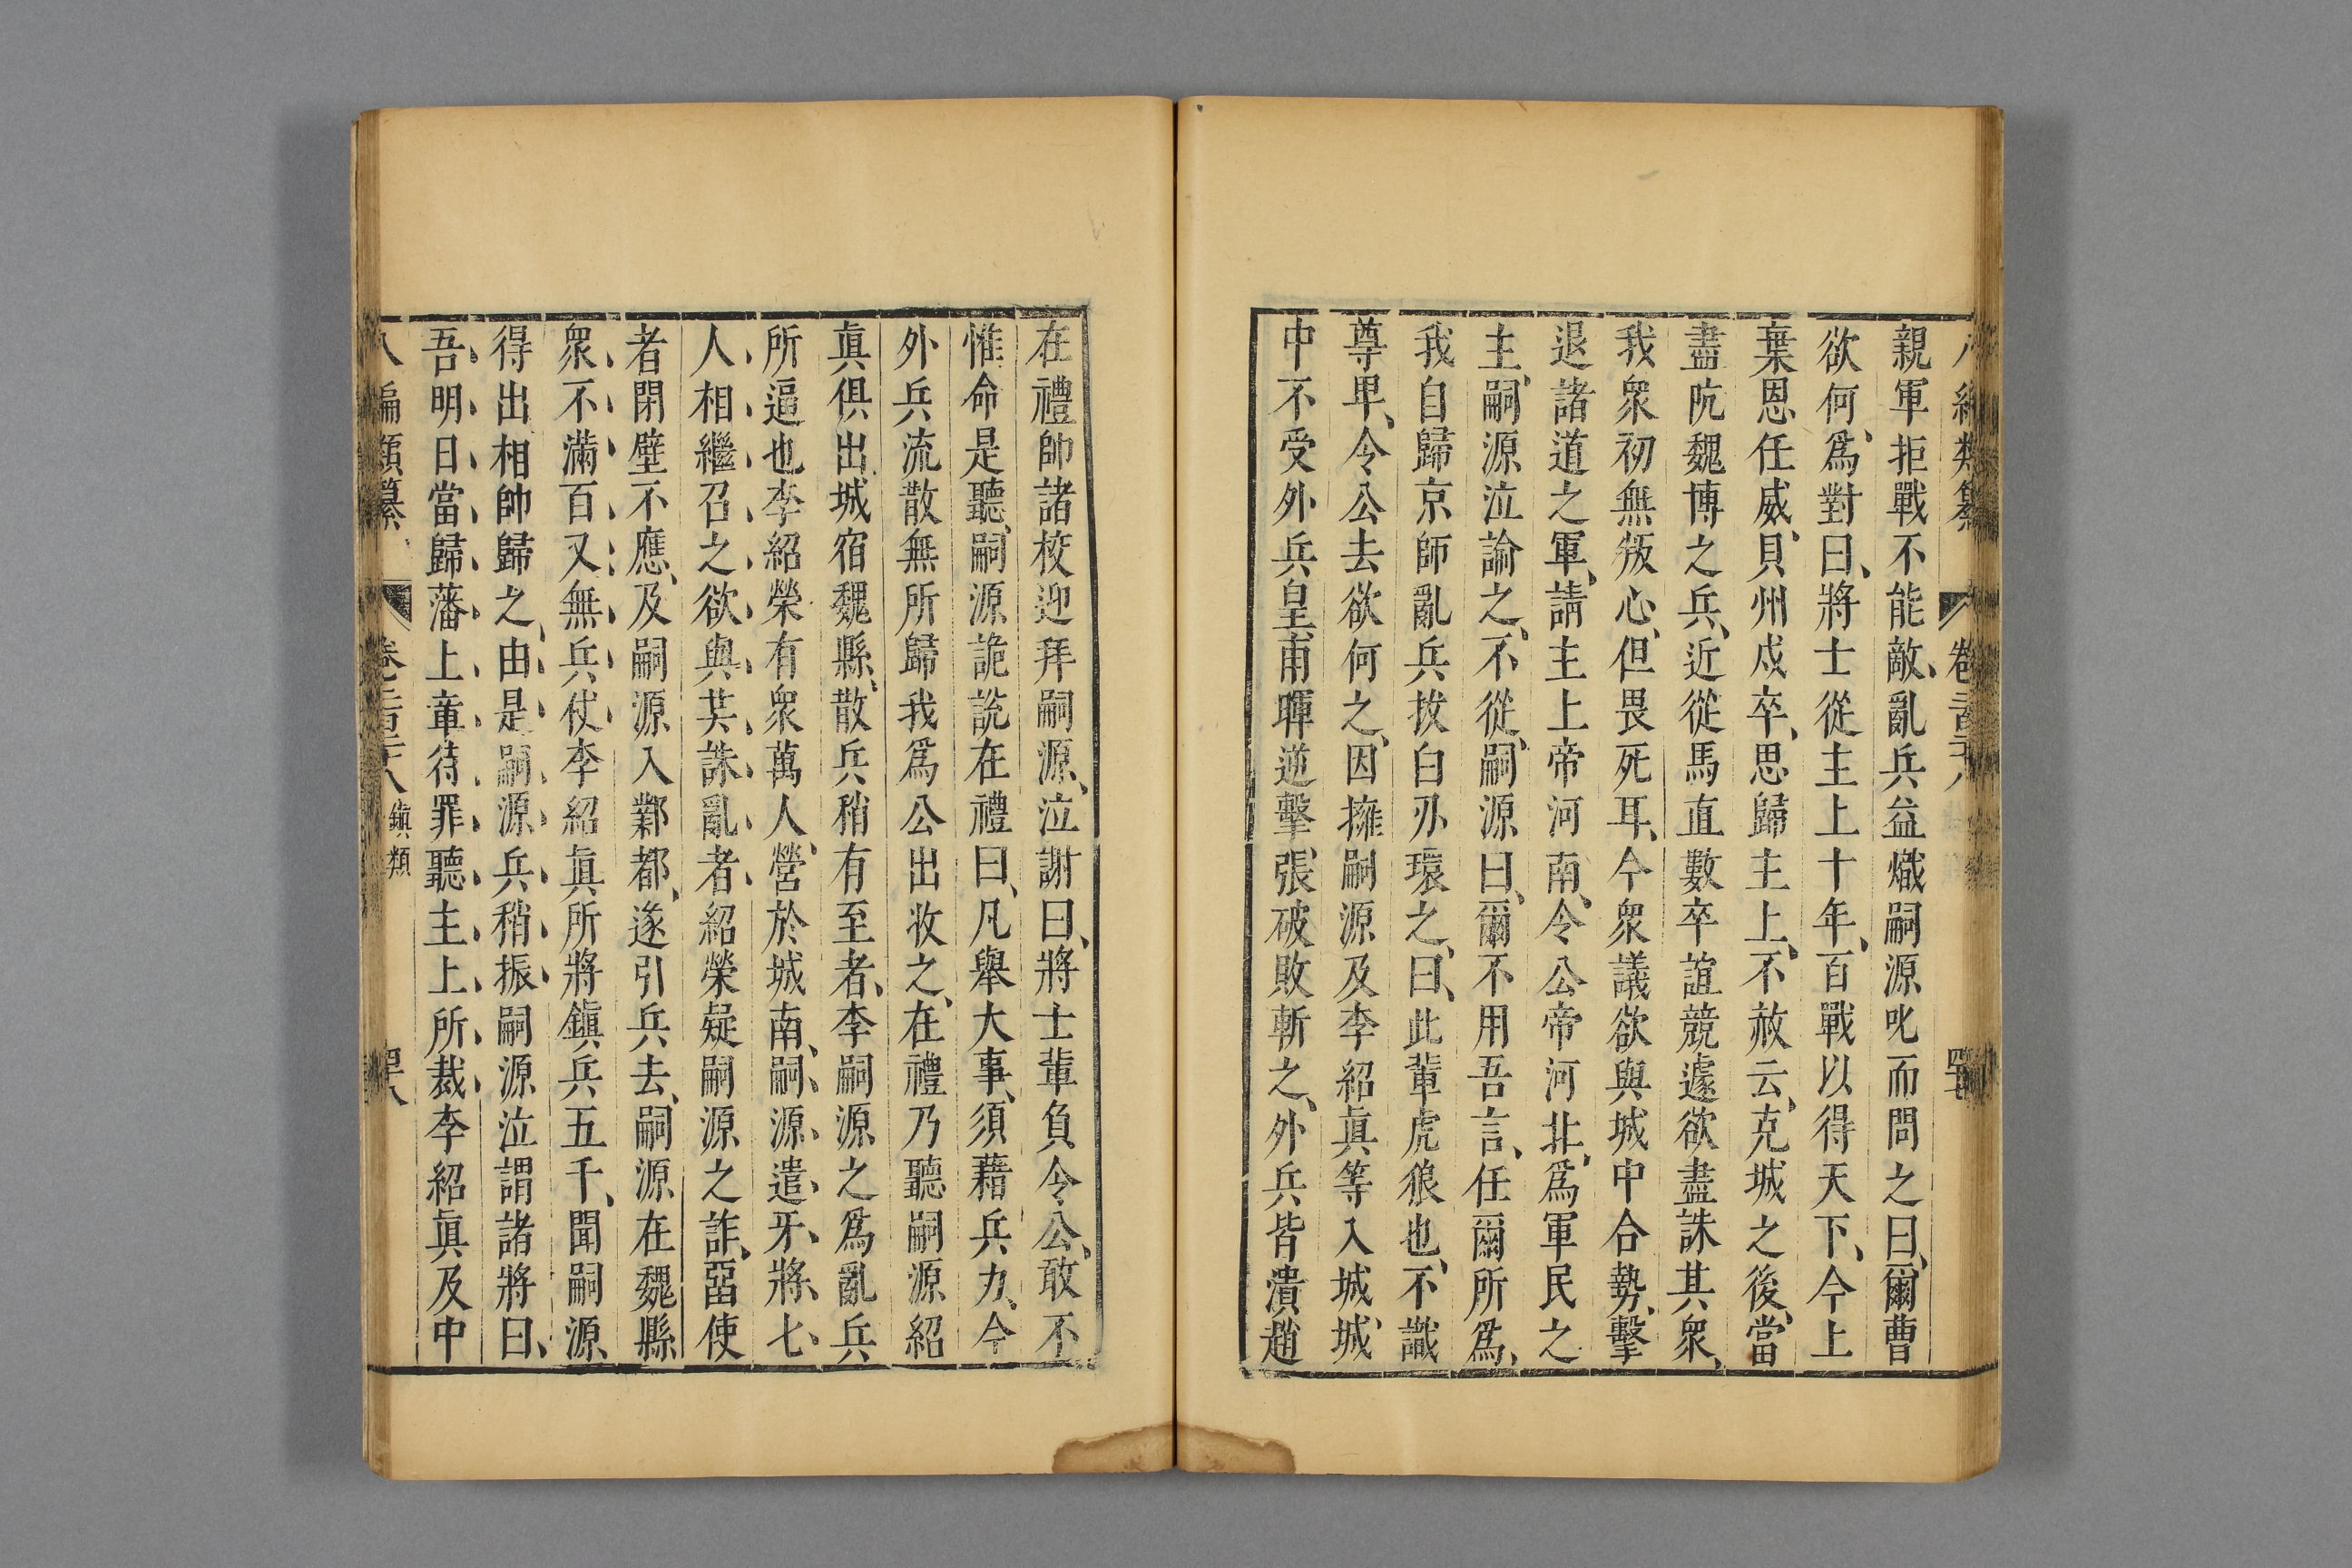 親軍拒戰不能敵、亂兵益熾嗣源叱而問之曰、爾曹
欲何、爲對曰、將士從主上十年、百戰以得天下、今上
棄恩任威、貝州戍卒、思歸主上、不赦云、克城之後、當
盡阬魏博之兵、近從馬直數卒諠競遽欲盡誅其衆、
我衆初無叛心、但畏死耳、今衆議欲與城中合勢、擊
退諸道之軍、請主上帝河南、令公帝河北、爲軍民之
主、嗣源泣諭之、不從、嗣源曰、爾不用吾言、任爾所爲、
我自歸京師亂兵拔白刃環之、曰、此輩虎狼也、不識
尊卑、令公去欲何之、因擁嗣源及李紹眞等入城、城
中不受外兵皇甫暉逆擊、張破敗斬之、外兵皆潰趙
在禮帥諸校迎拜嗣源、泣謝曰、將士輩負令公、敢不
惟命是聽、嗣源詭說在禮曰、凡舉大事、須藉兵力、今
外兵流散無所歸我爲公出收之、在禮乃聽嗣源紹
眞俱出城宿魏縣、散兵稍有至者、李嗣源之爲亂兵
所逼也李紹榮有衆萬人、營於城南、嗣源遣牙將七
人相繼召之欲與共誅亂者紹榮疑嗣源之詐、畱使
者閉壁不應、及嗣源入鄴都、遂引兵去、嗣源在魏縣
衆不滿百又無兵仗李紹眞所將鎭兵五千、聞嗣源
得出相帥歸之、由是嗣源兵稍振嗣源泣謂諸將曰、
吾明日當歸藩上章待罪聽主上所裁李紹眞及中
八編類纂 卷二百二十八 鎭類 四十八